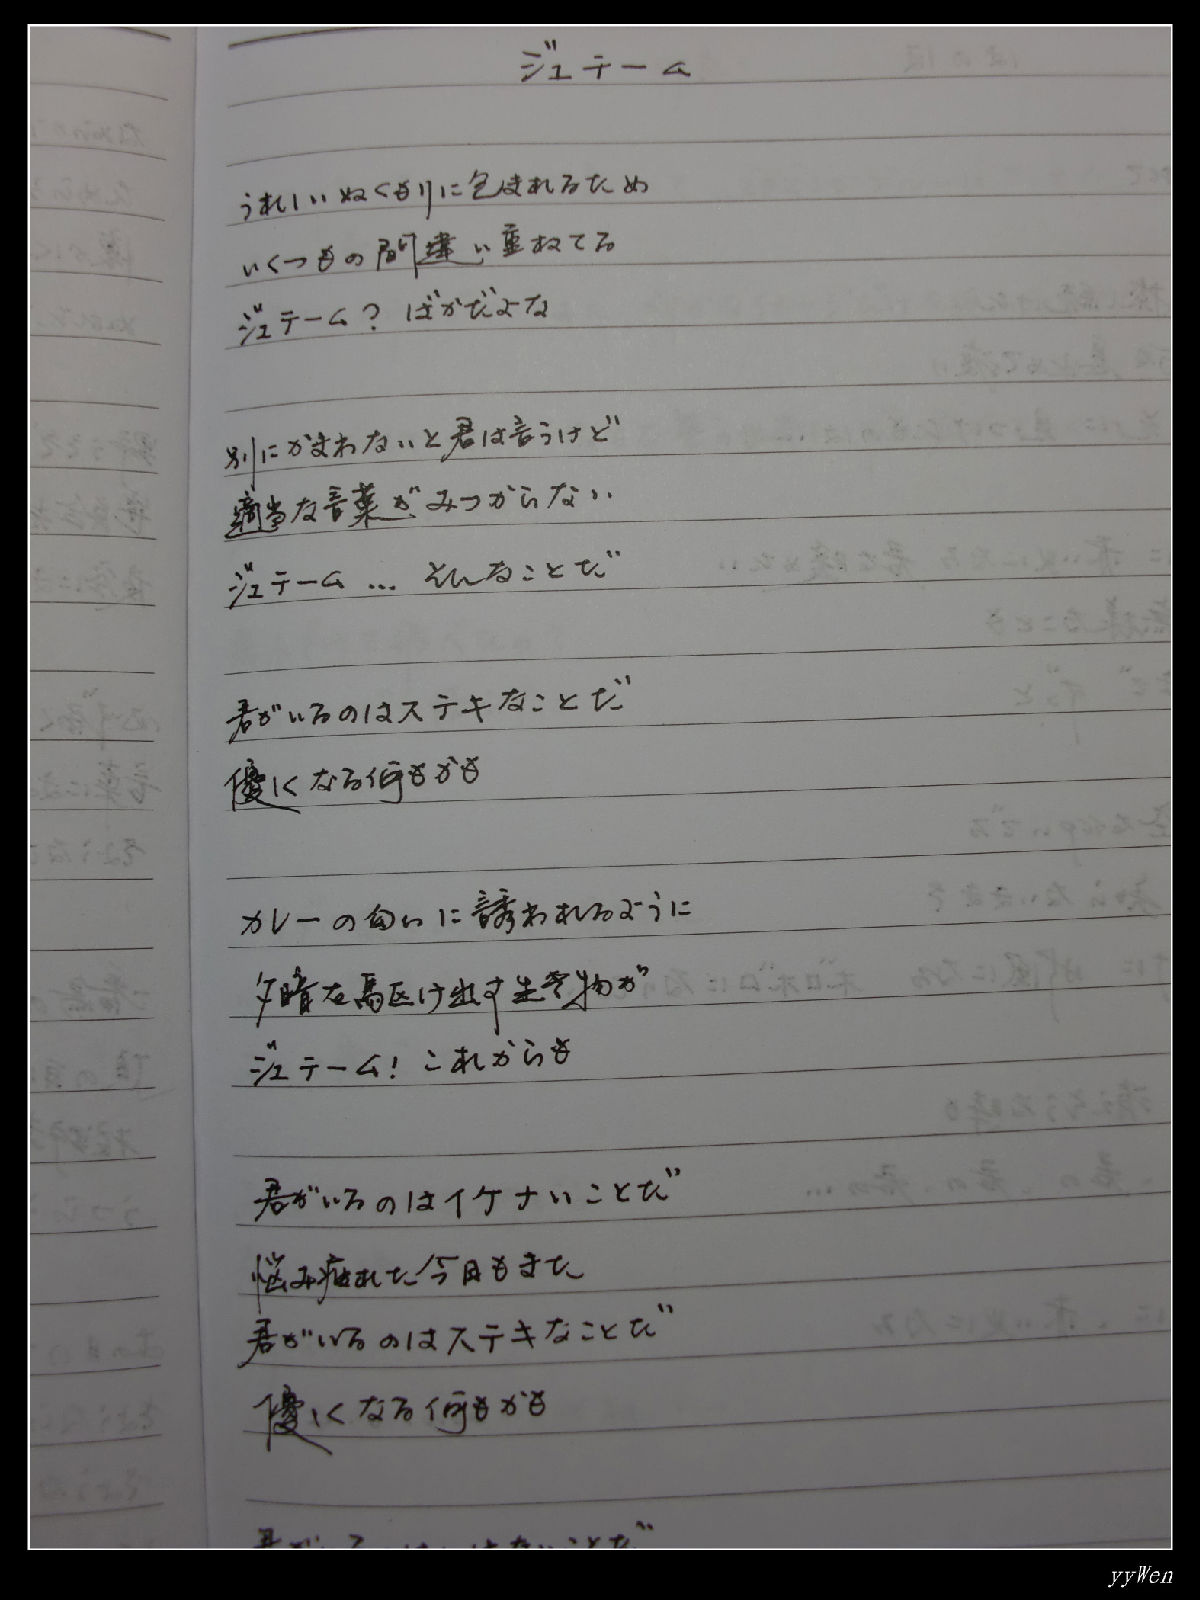 ジュテーム
うれしいぬくもりに包まれるため
いくつもの間違い重ねてる
ジュテーム？ ばかだよな
別にかまわないと君は言うけど
適当な言葉がみつからない
ジュテーム … そんなことだ
君がいるのはステキなことだ
優しくなる何もかも
カレーの匂いに誘われるように
夕暗を駆け出す生き物が
ジュテーム！ これからも
君がいるのはイケナいことだ
悩み疲れた今日もまた
君がいるのはステキなことだ
優しくなる何もかも
yyWen